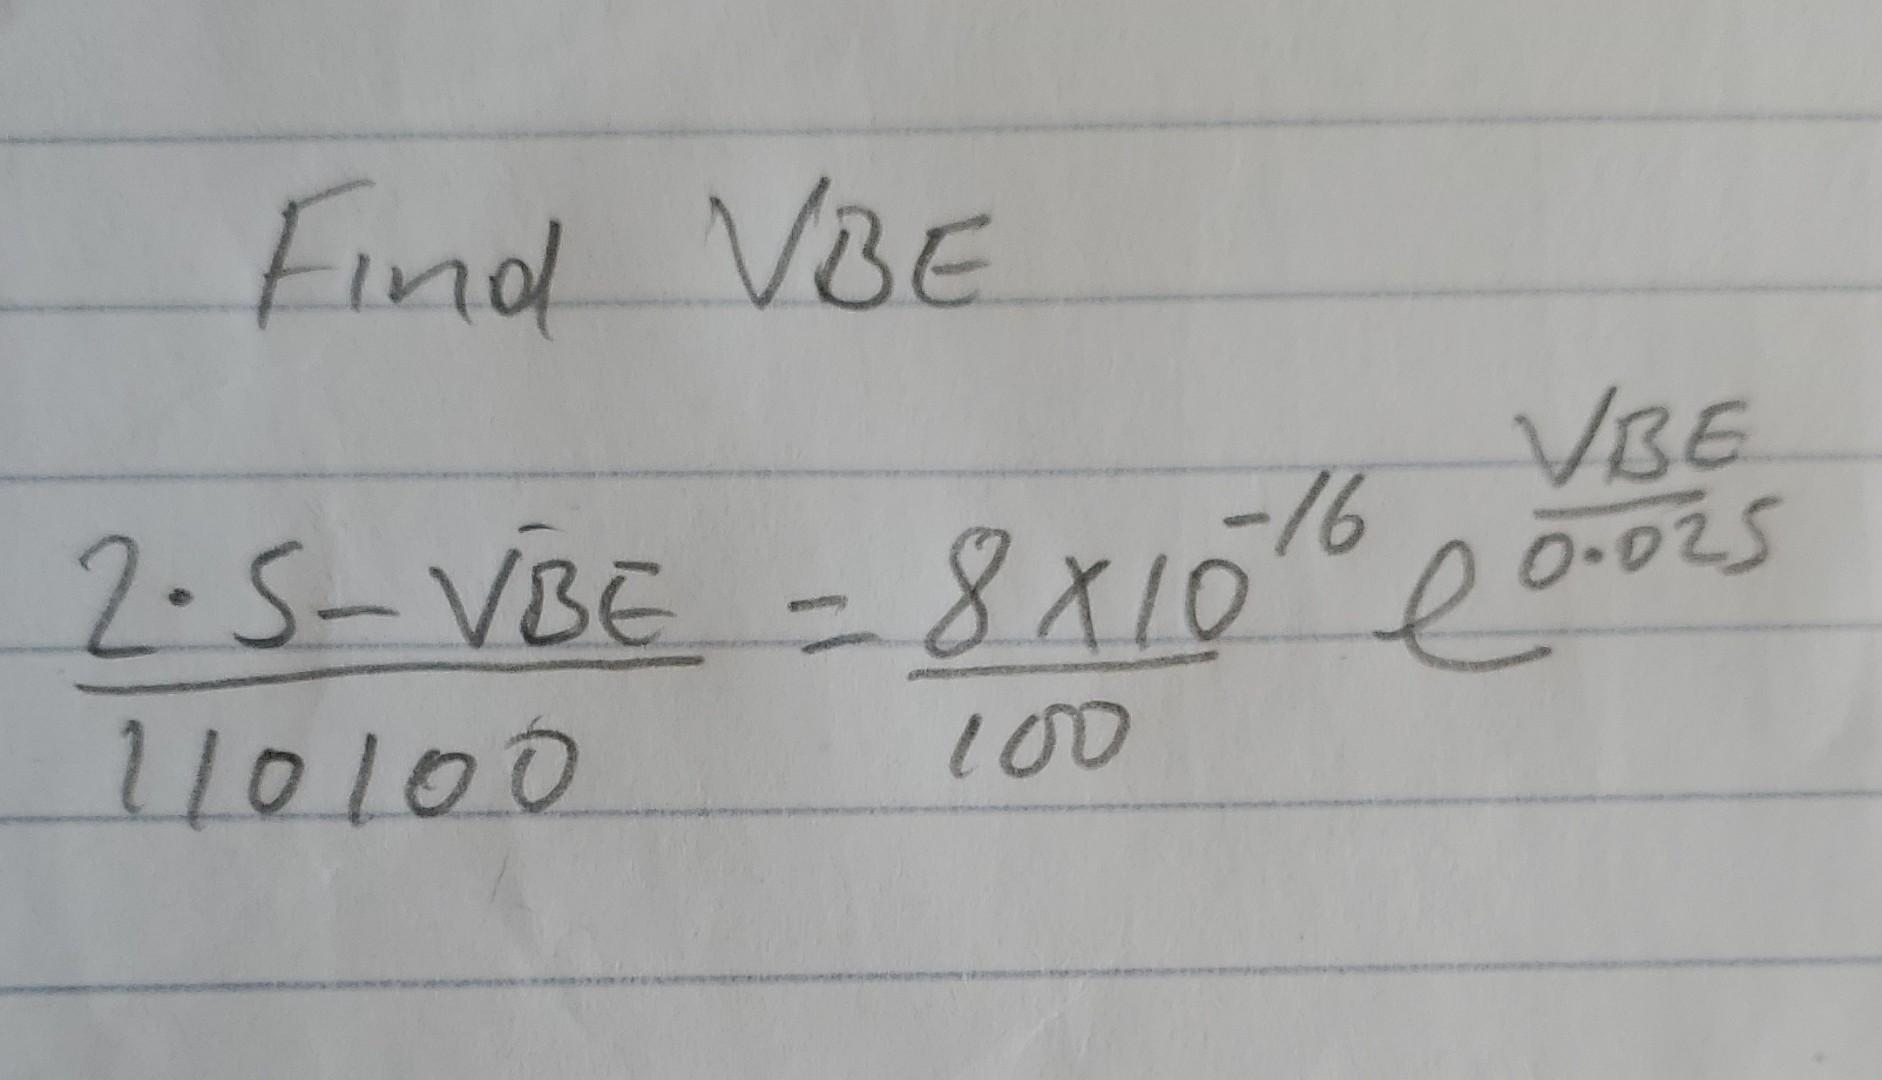 Find VBE
2.5 - VBE / 110100 = 8 x 10^-16 / 100 e^(VBE / 0.025)